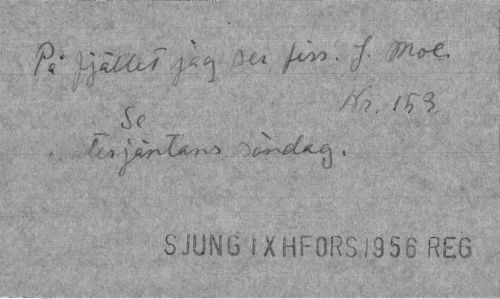 På fjället jag ser firr. J. Moe.
Nr. 153
Se
terjäntans söndag.
SJUNG IX HFORS 1956 REG